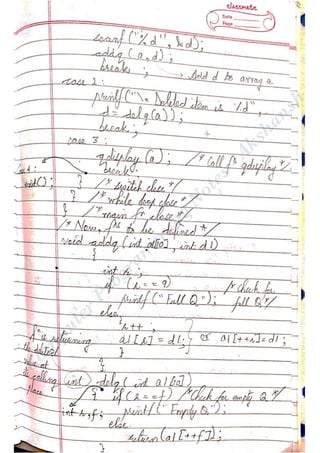 classmate
Date
Page
scanf ("%d", &d);
addq (a, d);
break ; → Add d to array a
case 2 :
printf ("\n Deleted item is %d",
d = delq(a));
break;
case 3 :
qdisplay (a) ; /* Call fn qdisplay */
break;
case 4 :
exit(); } /* switch close */
} /* while loop close */
} /* main fn close */
/* Now, fns to be defined */
void addq (int a1[10], int d1)
{
int r ;
if (r == 9) /* Check for
printf ("Full Q") ; full Q */
else
{
r++ ;
a1[r] = d1; } or a1[++r] = d1;
}
}
fn is returning
the deleted
value at
the calling
place
(int) delq ( int a1[10]
{ if (r == f) /* Check for empty Q */
int r, f; printf (" Empty Q") ;
else
return (a1[++f]);